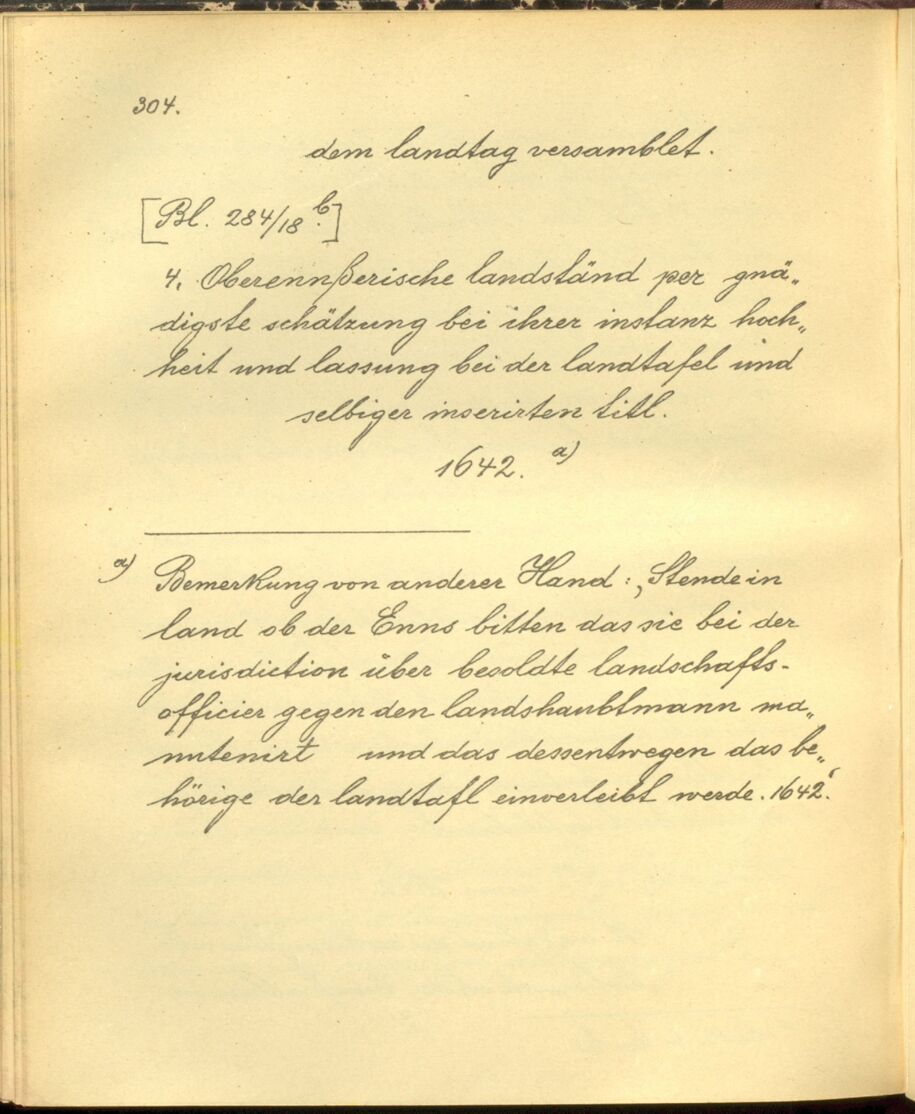 304.
dem landtag versamblet.
[Bl. 284/18 b.]
4. Oberennßerische landständ per gnä„
digste schätzung bei ihrer instanz hoch„
heit und lassung bei der landtafel und
selbiger inserirten titl.
1642. a)
a) Bemerkung von anderer Hand: ‚Stende in
land ob der Enns bitten das sie bei der
jurisdiction über besoldte landschafts-
officier gegen den landshaubtmann ma„
nutenirt und das dessentwegen das be„
hörige der landtafl einverleibt werde. 1642.‘